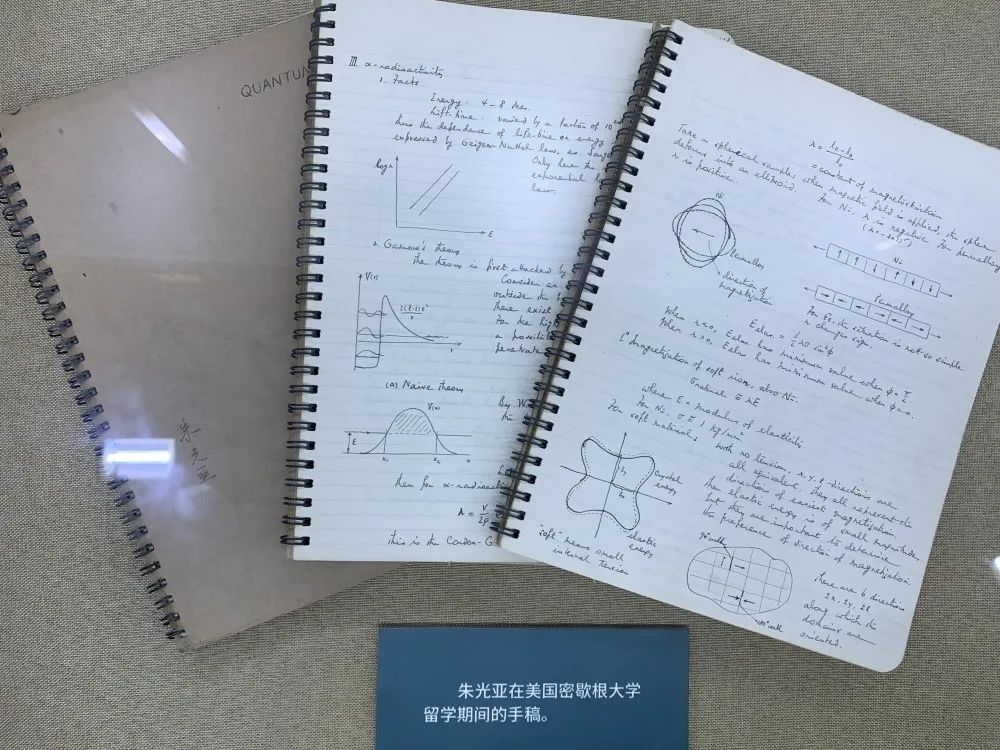 QUANTUM
朱光亚
III. α-radioactivity
1. Facts
Energy: 4-8 Mev.
Life time: varied by a factor of 10
thus the dependence of life-time on energy
expressed by Geiger-Nuttal law, as
Only here the
exponential
law.
log λ
E
2. Gamow's theory
the theory is first attacked by
Consider an
outside the
there exist
For the
a possible
penetrate
V(r)
r
(a) Naive theory
By W
V(x)
E
x₁
x₂
x
then for α-radioact
λ =
this is the Condon-G
= constant of magnetostriction
Take a spherical sample, when magnetic field is applied, the sphere
deforms into an ellipsoid.
For Ni, λ is negative. For permalloy
λ is positive.
Ni
Permalloy
direction of
magnetization
Ni
Permalloy
For Fe, the situation is not so simple.
λ changes sign.
When λ<0, Eelas has minimum value when φ =
When λ>0, Eelas has minimum value when φ=0.
Magnetization of soft iron, also Ni.
where E = modulus of elasticity
For Ni, σ ≅ 1 kg/mm²
For soft materials, with no tension, x, y, z directions are
all equivalent, they all represent the
direction of easiest magnetisation.
the elastic energy is of small magnitude,
but, they are important to determine
the preference of direction of magnetization.
Crystal
energy
elastic
energy
"soft" means small
internal tension
90° wall
180° wall
there are 6 directions
along which the
domains are
oriented.
朱光亚在美国密歇根大学
留学期间的手稿。